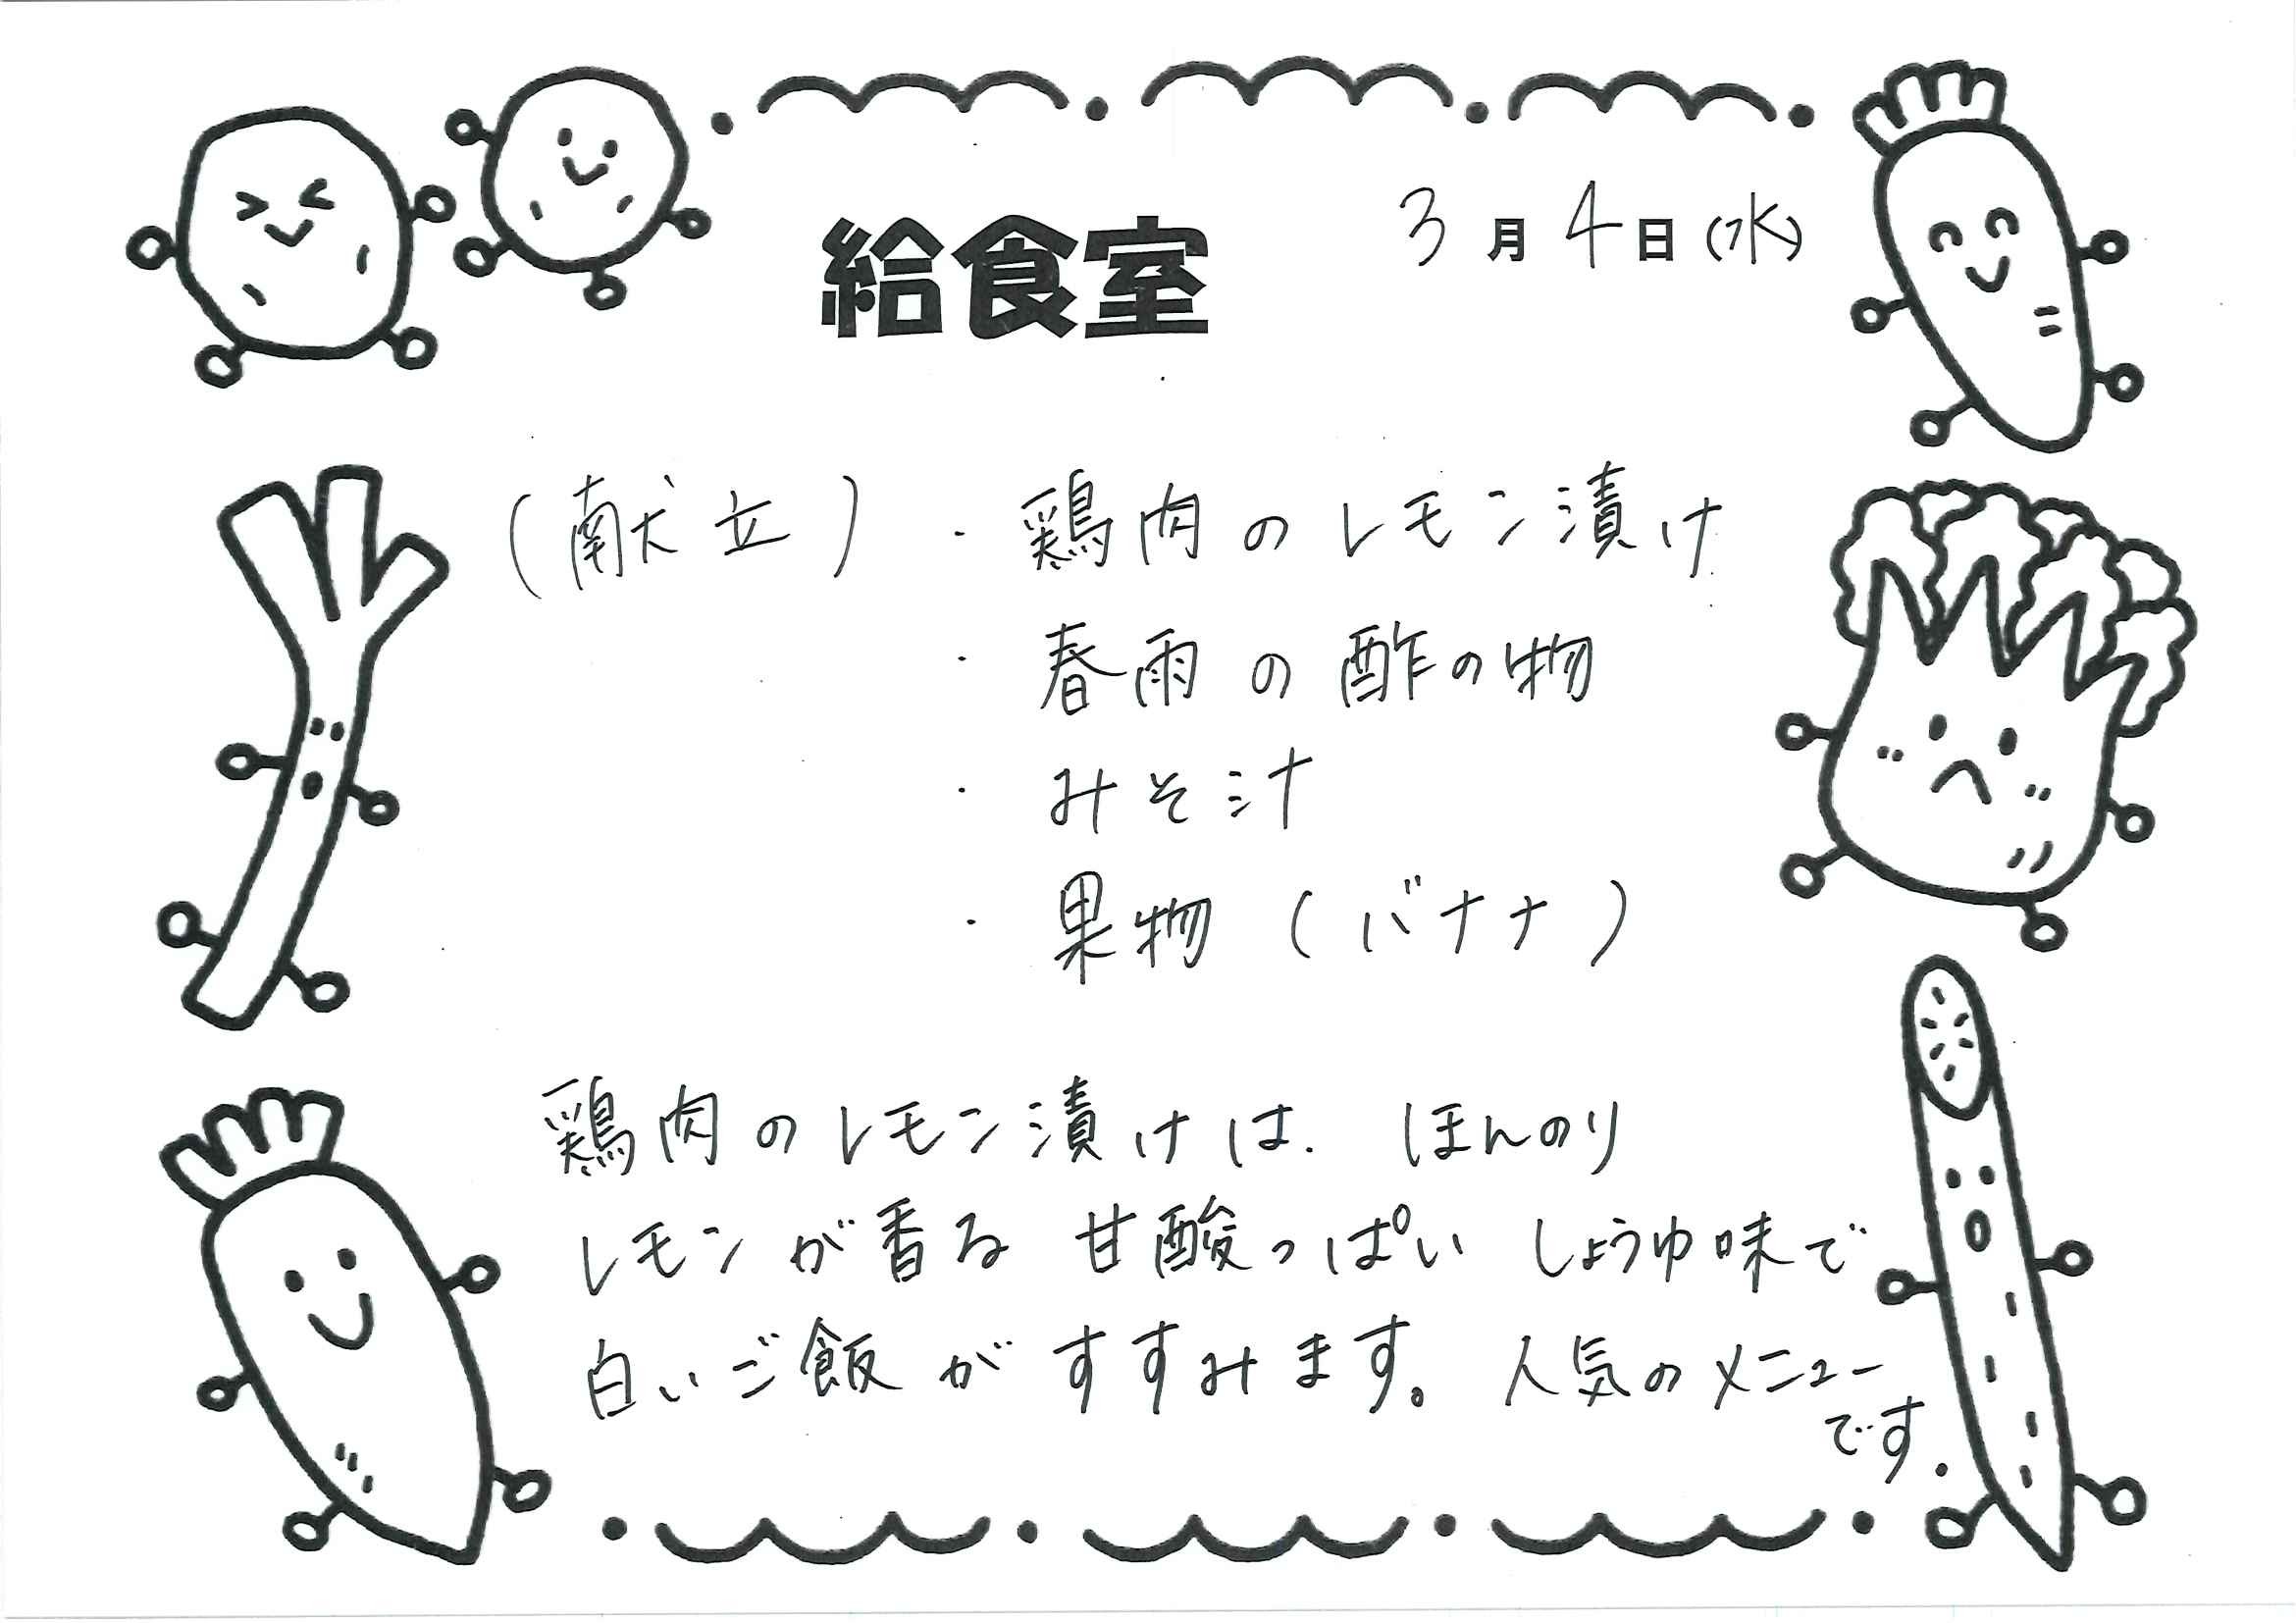 給食室
3月4日(水)
(献立)・鶏肉のレモン漬け
・春雨の酢の物
・みそ汁
・果物(バナナ)
鶏肉のレモン漬けは、ほんのり
レモンが香る甘酸っぱいしょうゆ味で
白いご飯がすすみます。人気のメニュー
です。